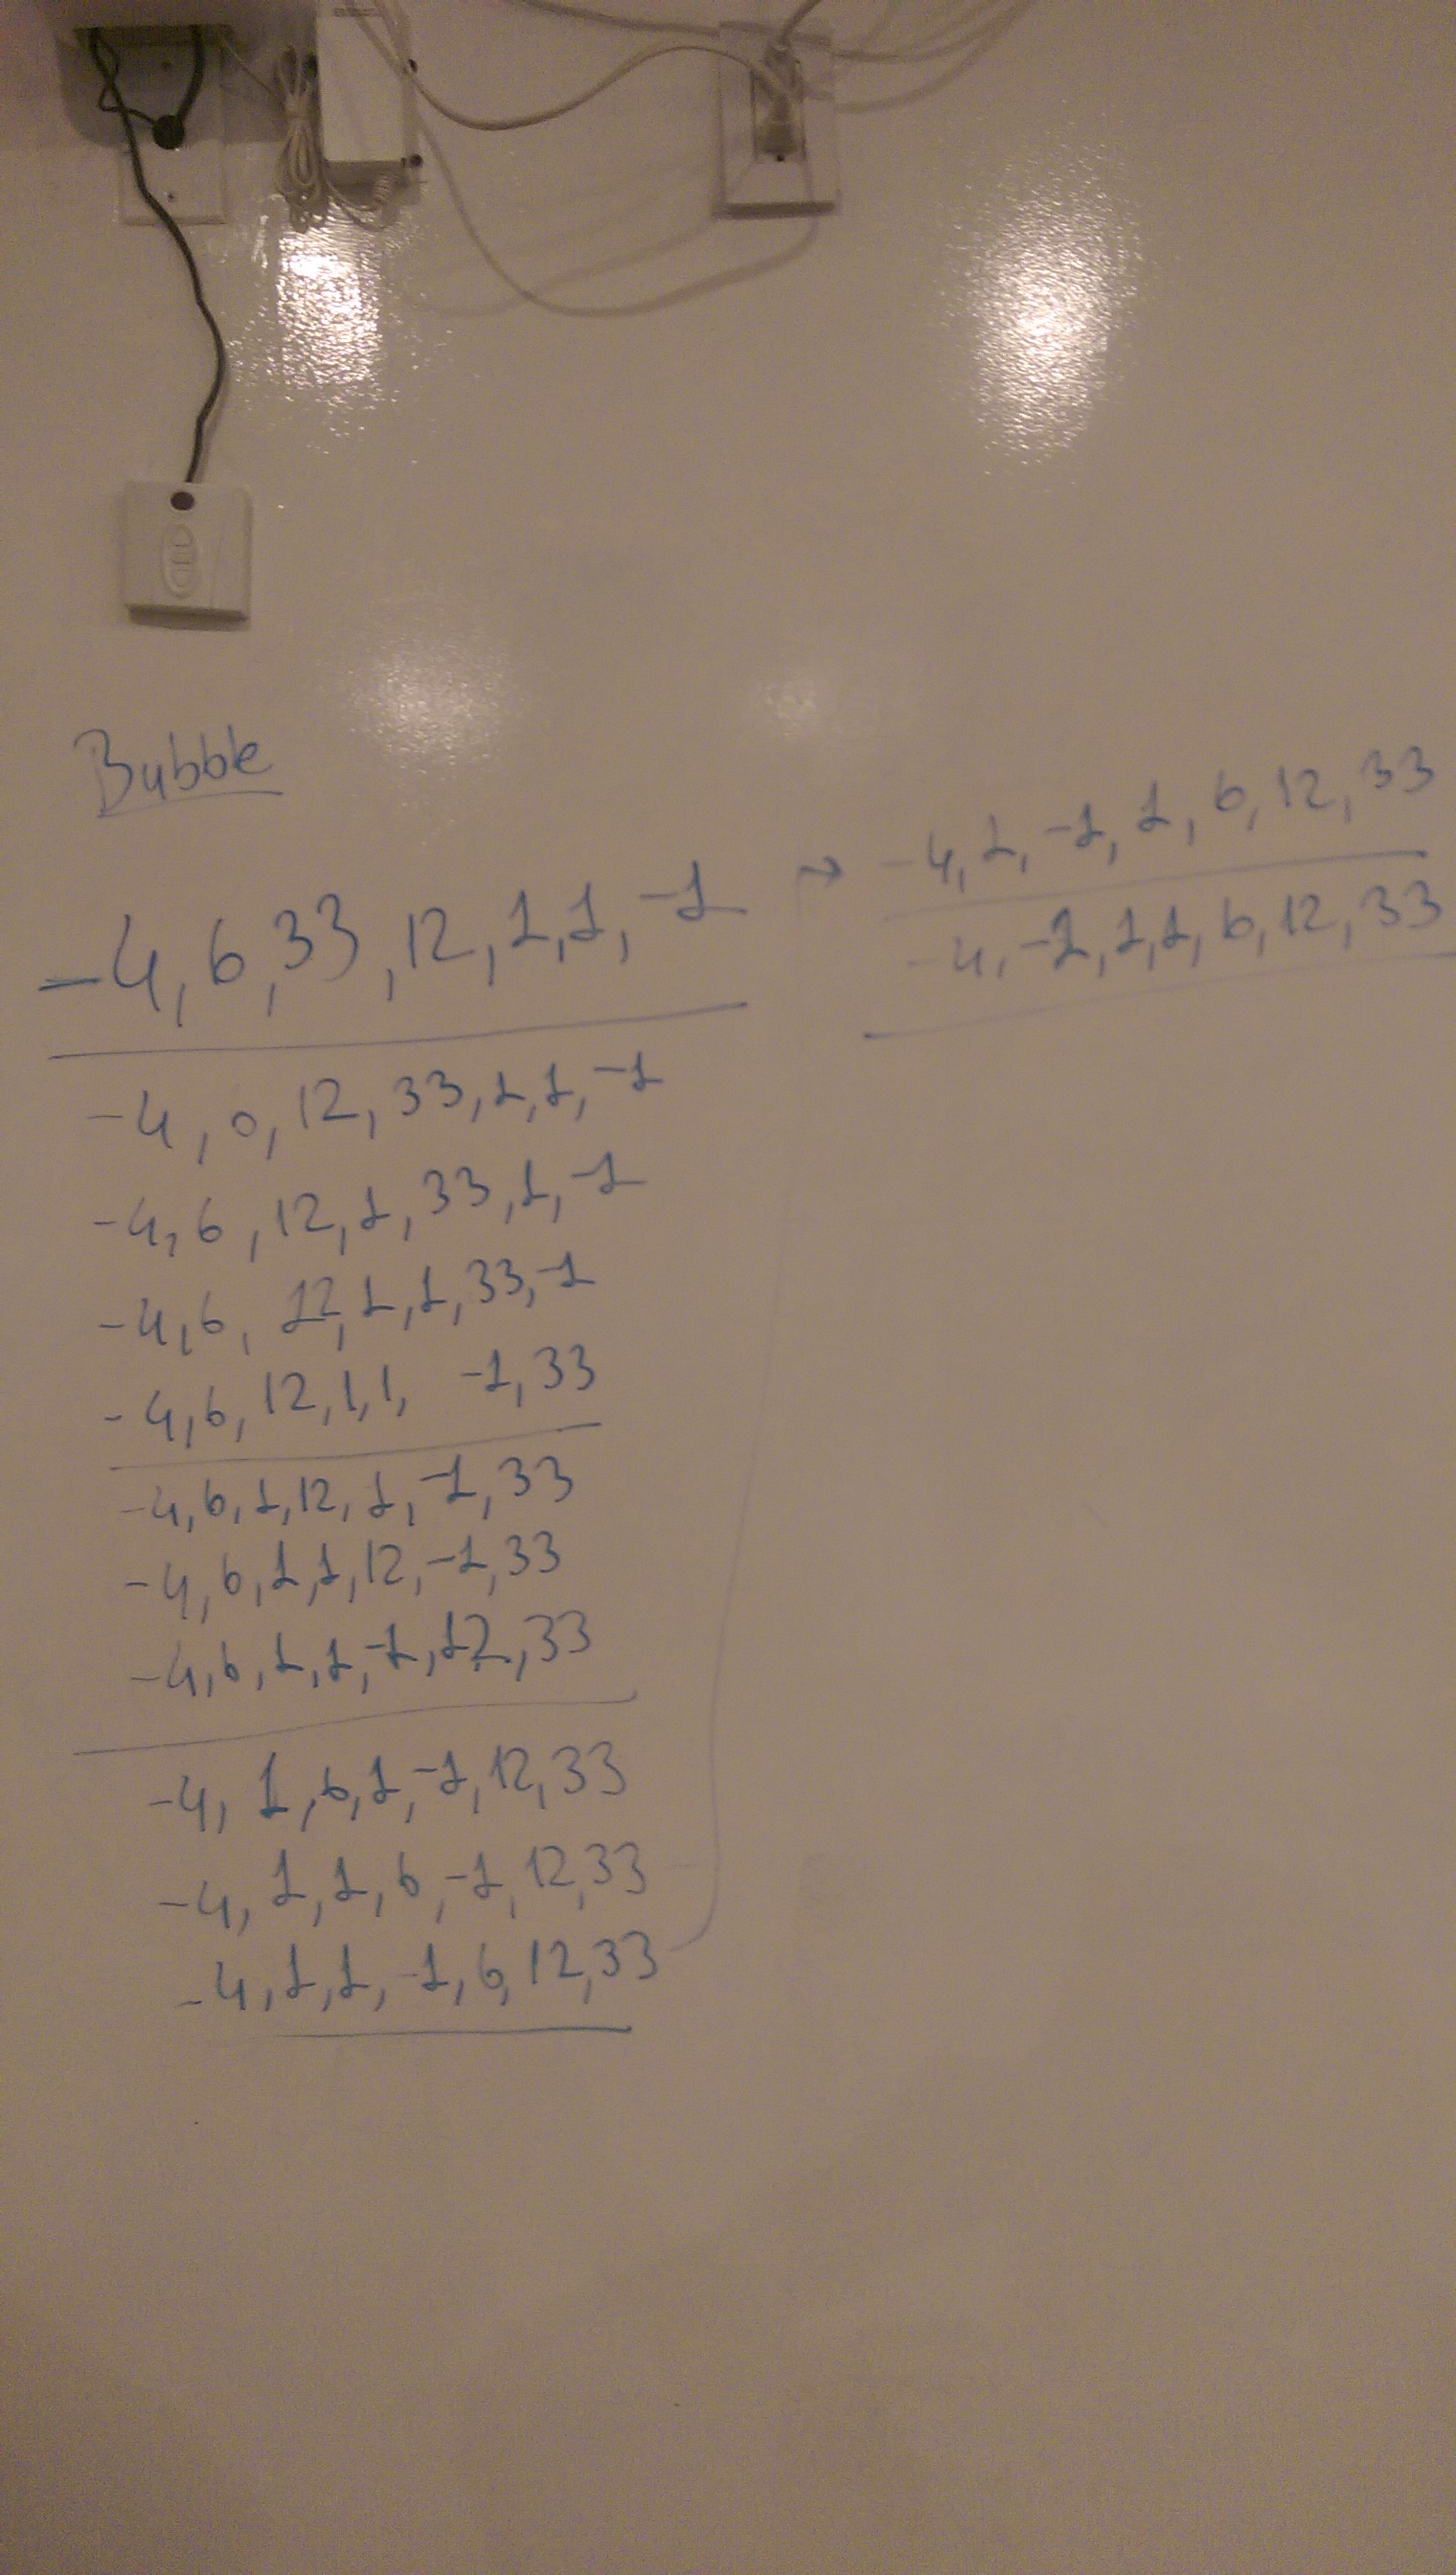 Bubble
-4, 6, 33, 12, 1, 1, -1
-4, 0, 12, 33, 1, 1, -1
-4, 6, 12, 1, 33, 1, -1
-4, 6, 12, 1, 1, 33, -1
-4, 6, 12, 1, 1, -1, 33
-4, 6, 1, 12, 1, -1, 33
-4, 6, 1, 1, 12, -1, 33
-4, 6, 1, 1, -1, 12, 33
-4, 1, 6, 1, -1, 12, 33
-4, 1, 1, 6, -1, 12, 33
-4, 1, 1, -1, 6, 12, 33
→ -4, 1, -1, 1, 6, 12, 33
-4, -1, 1, 1, 6, 12, 33